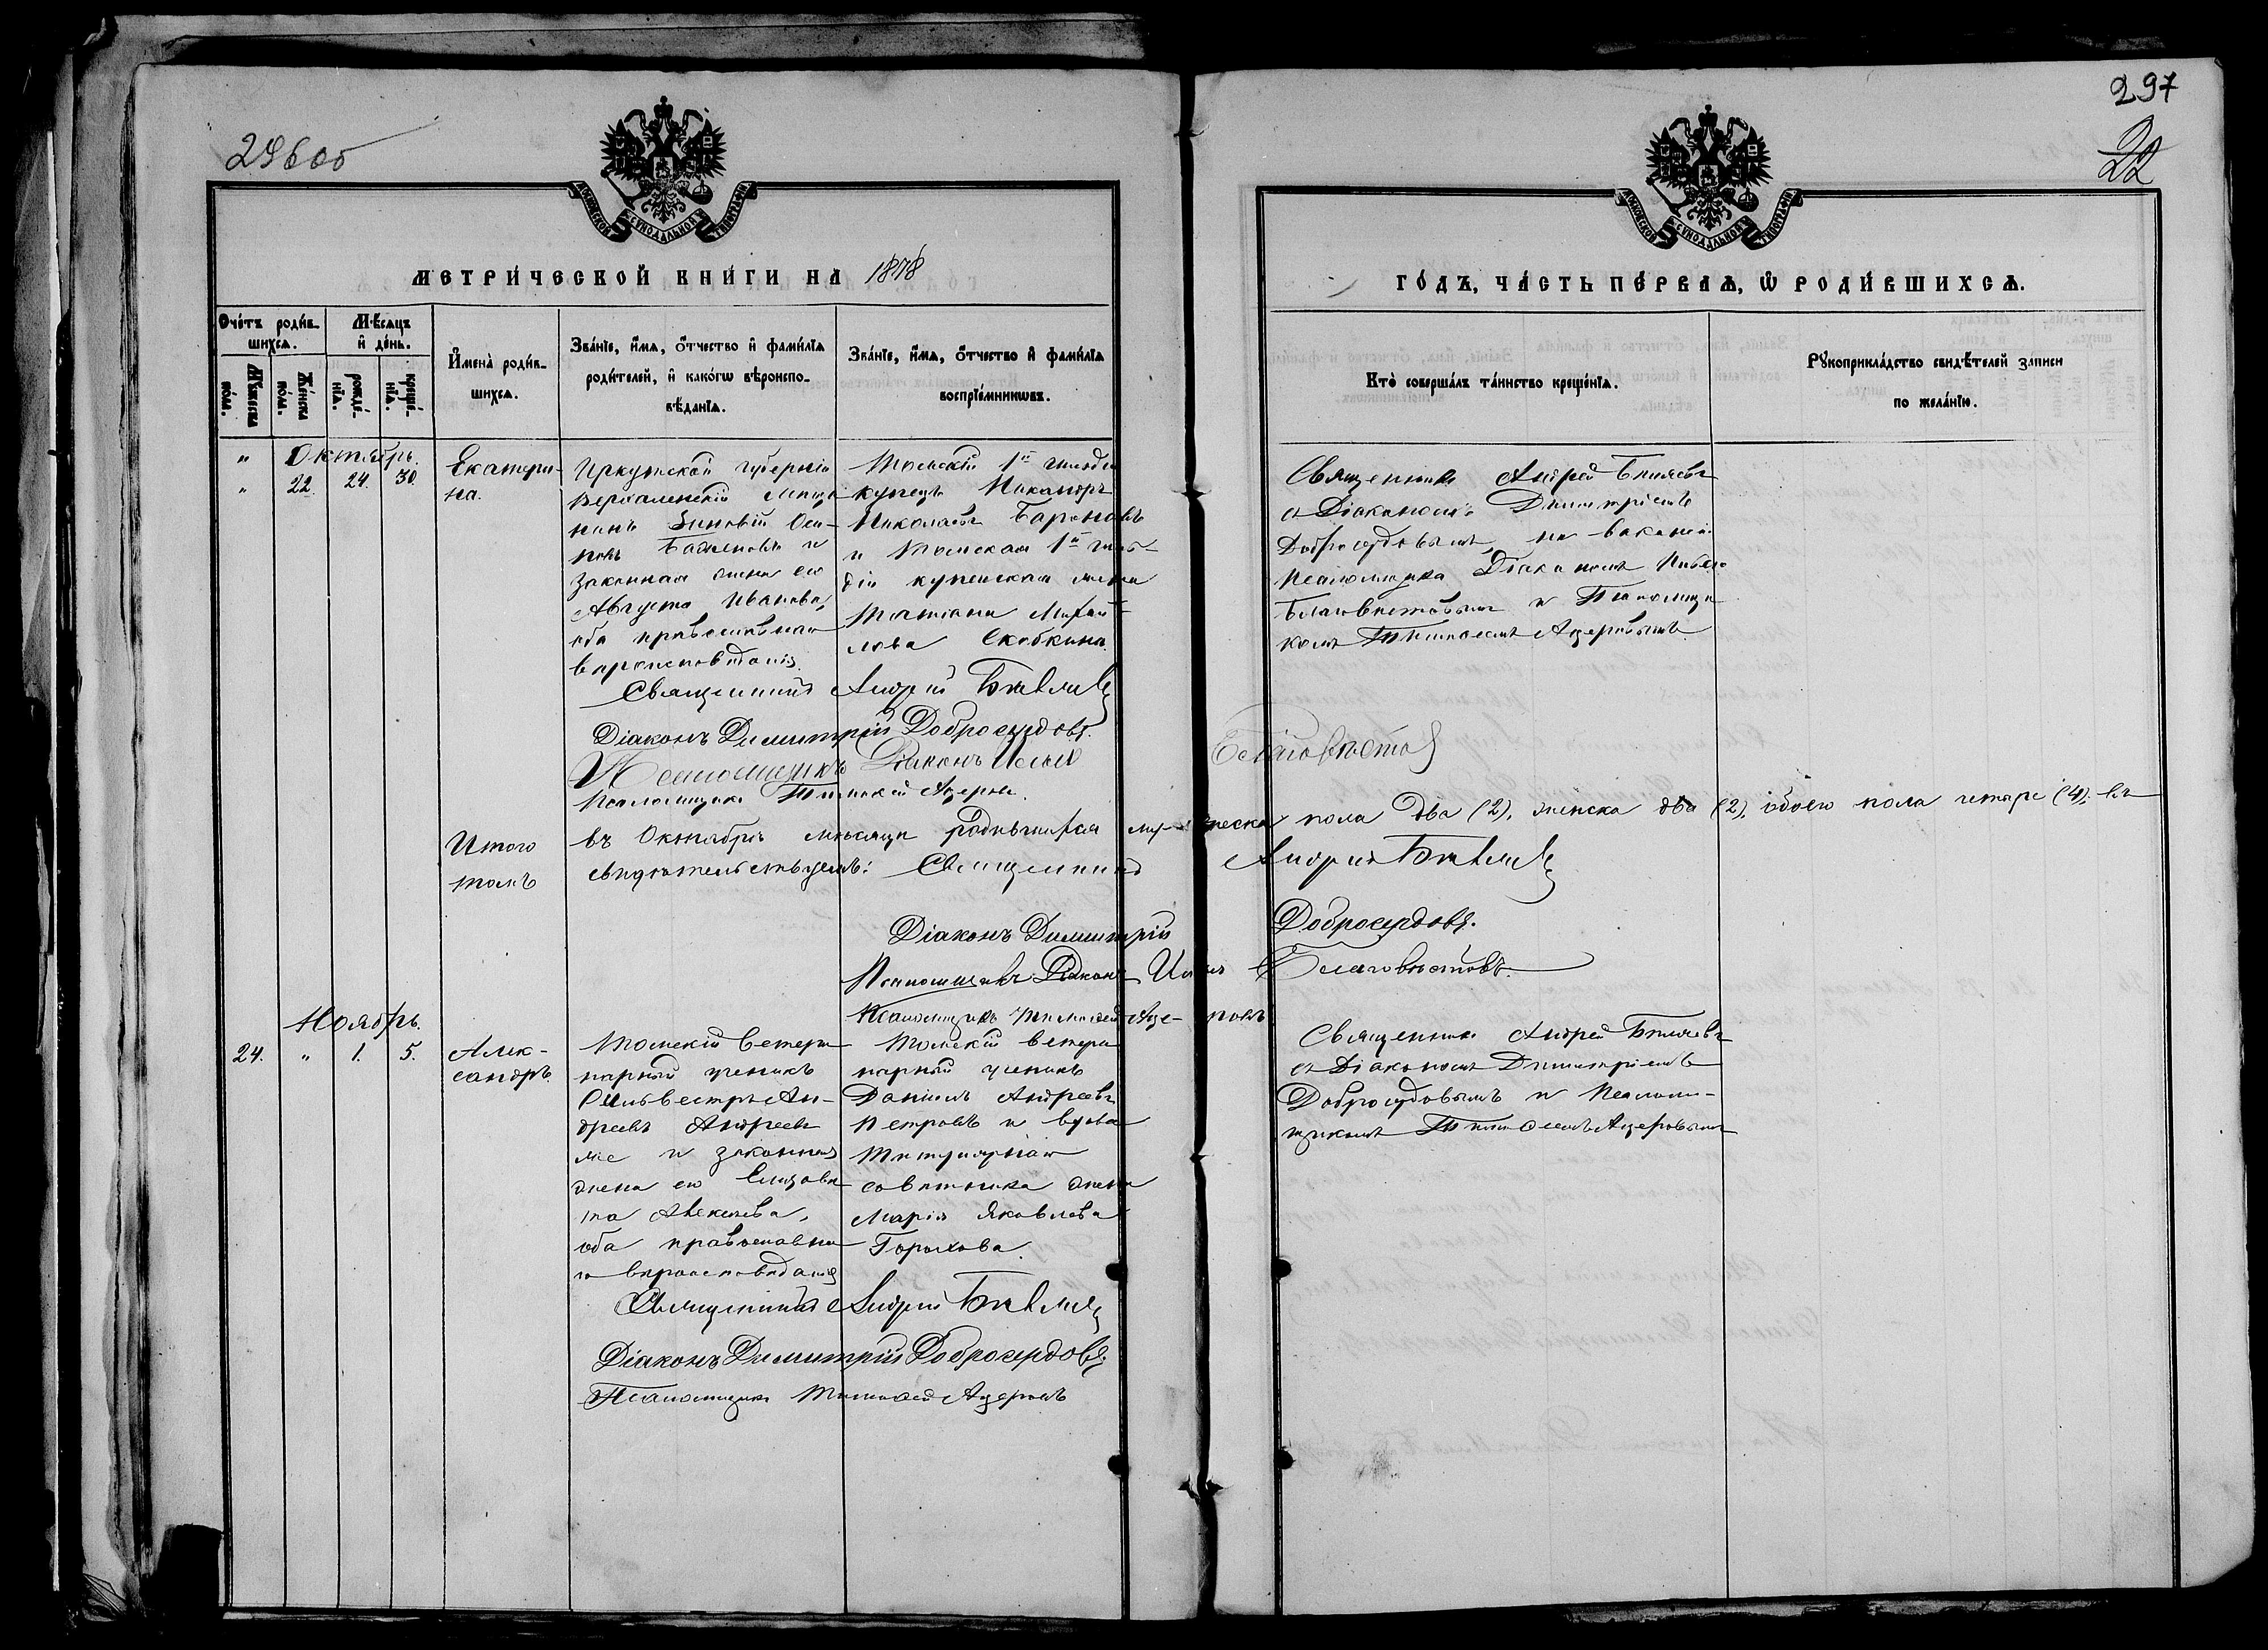 297
296об
22
МОСКОВСКОЙ СѴНОДАЛЬНОЙ ТИПОГРАФІИ
МОСКОВСКОЙ СѴНОДАЛЬНОЙ ТИПОГРАФІИ
МЕТРИ́ЧЕСКОЙ КНИ́ГИ НА 1878
ГО́ДЪ, ЧА́СТЬ ПЕ́РВАѦ, Ѽ РОДИ́ВШИХСѦ.
Счётъ роди́вшихсѧ.
Мужеска по́ла.
Же́нска по́ла.
Мѣ́сѧцъ и҆ де́нь.
рожде́нїѧ.
креще́нїѧ.
И҆мена̀ роди́вшихсѧ.
Зва́нїе, и҆́мѧ, ѻ҆́тчество и҆ фами́лїѧ
роди́телей, и҆ како́гѡ вѣроиспо-
вѣ́данїѧ.
Зва́нїе, и҆́мѧ, ѻ҆́тчество и҆ фами́лїѧ
воспрїе́мникѡвъ.
Кто̀ соверша́лъ та́инство креще́нїѧ.
Рꙋкоприкла́дство свидѣ́телей за́писи
по жела́нїю.
Октябрь.
" 22. 24. 30.
Екатери-
на.
Иркутской губерніи
Верхоленскій мѣща-
нинъ Зиновій Оси-
повъ Баженовъ и
законная жена его
Августа Иванова,
оба православнаго
вѣроисповѣданія.
Томскій 1й гильдіи
купецъ Никаноръ
Николаевъ Бароновъ
и Томская 1й гиль-
діи купеческая жена
Татіана Михай-
лова Скобкина.
Священникъ Андрей Бѣляевъ
съ Діакономъ Димитріемъ
Добросердовымъ, на вакансіи
Псаломщика Діакономъ
Благовѣстовымъ и Псаломщи-
комъ Тимоѳеемъ Ацеровымъ.
Священникъ Андрей Бѣляевъ
Діаконъ Димитрій Добросердовъ.
Псаломщикъ Діаконъ Благовѣстовъ
Псаломщикъ Тимоѳей Ацеровъ.
Итого въ Октябрѣ мѣсяцѣ родившихся мужеска пола два (2), женска два (2), обоего пола четыре (4); въ
томъ свидѣтельствуемъ: Священникъ Андрей Бѣляевъ
Діаконъ Димитрій Добросердовъ.
Псаломщикъ Діаконъ Благовѣстовъ.
Псаломщикъ Тимоѳей Ацеровъ
Ноябрь.
24. " 1. 5.
Алек-
сандръ.
Томскій ветери-
нарный ученикъ
Сильвестръ Ан-
дреевъ Андреевъ
же и законная
жена его Елизаве-
та Алексѣева,
оба православна-
го вѣроисповѣданія
Томскій ветери-
нарный ученикъ
Даніилъ Андреевъ
Петровъ и вдова
Титулярнаго
совѣтника жена
Марія Яковлева
Горохова.
Священникъ Андрей Бѣляевъ
съ Діакономъ Димитріемъ
Добросердовымъ и Псалом-
щикомъ Тимоѳеемъ Ацеровымъ
Священникъ Андрей Бѣляевъ
Діаконъ Димитрій Добросердовъ.
Псаломщикъ Тимоѳей Ацеровъ